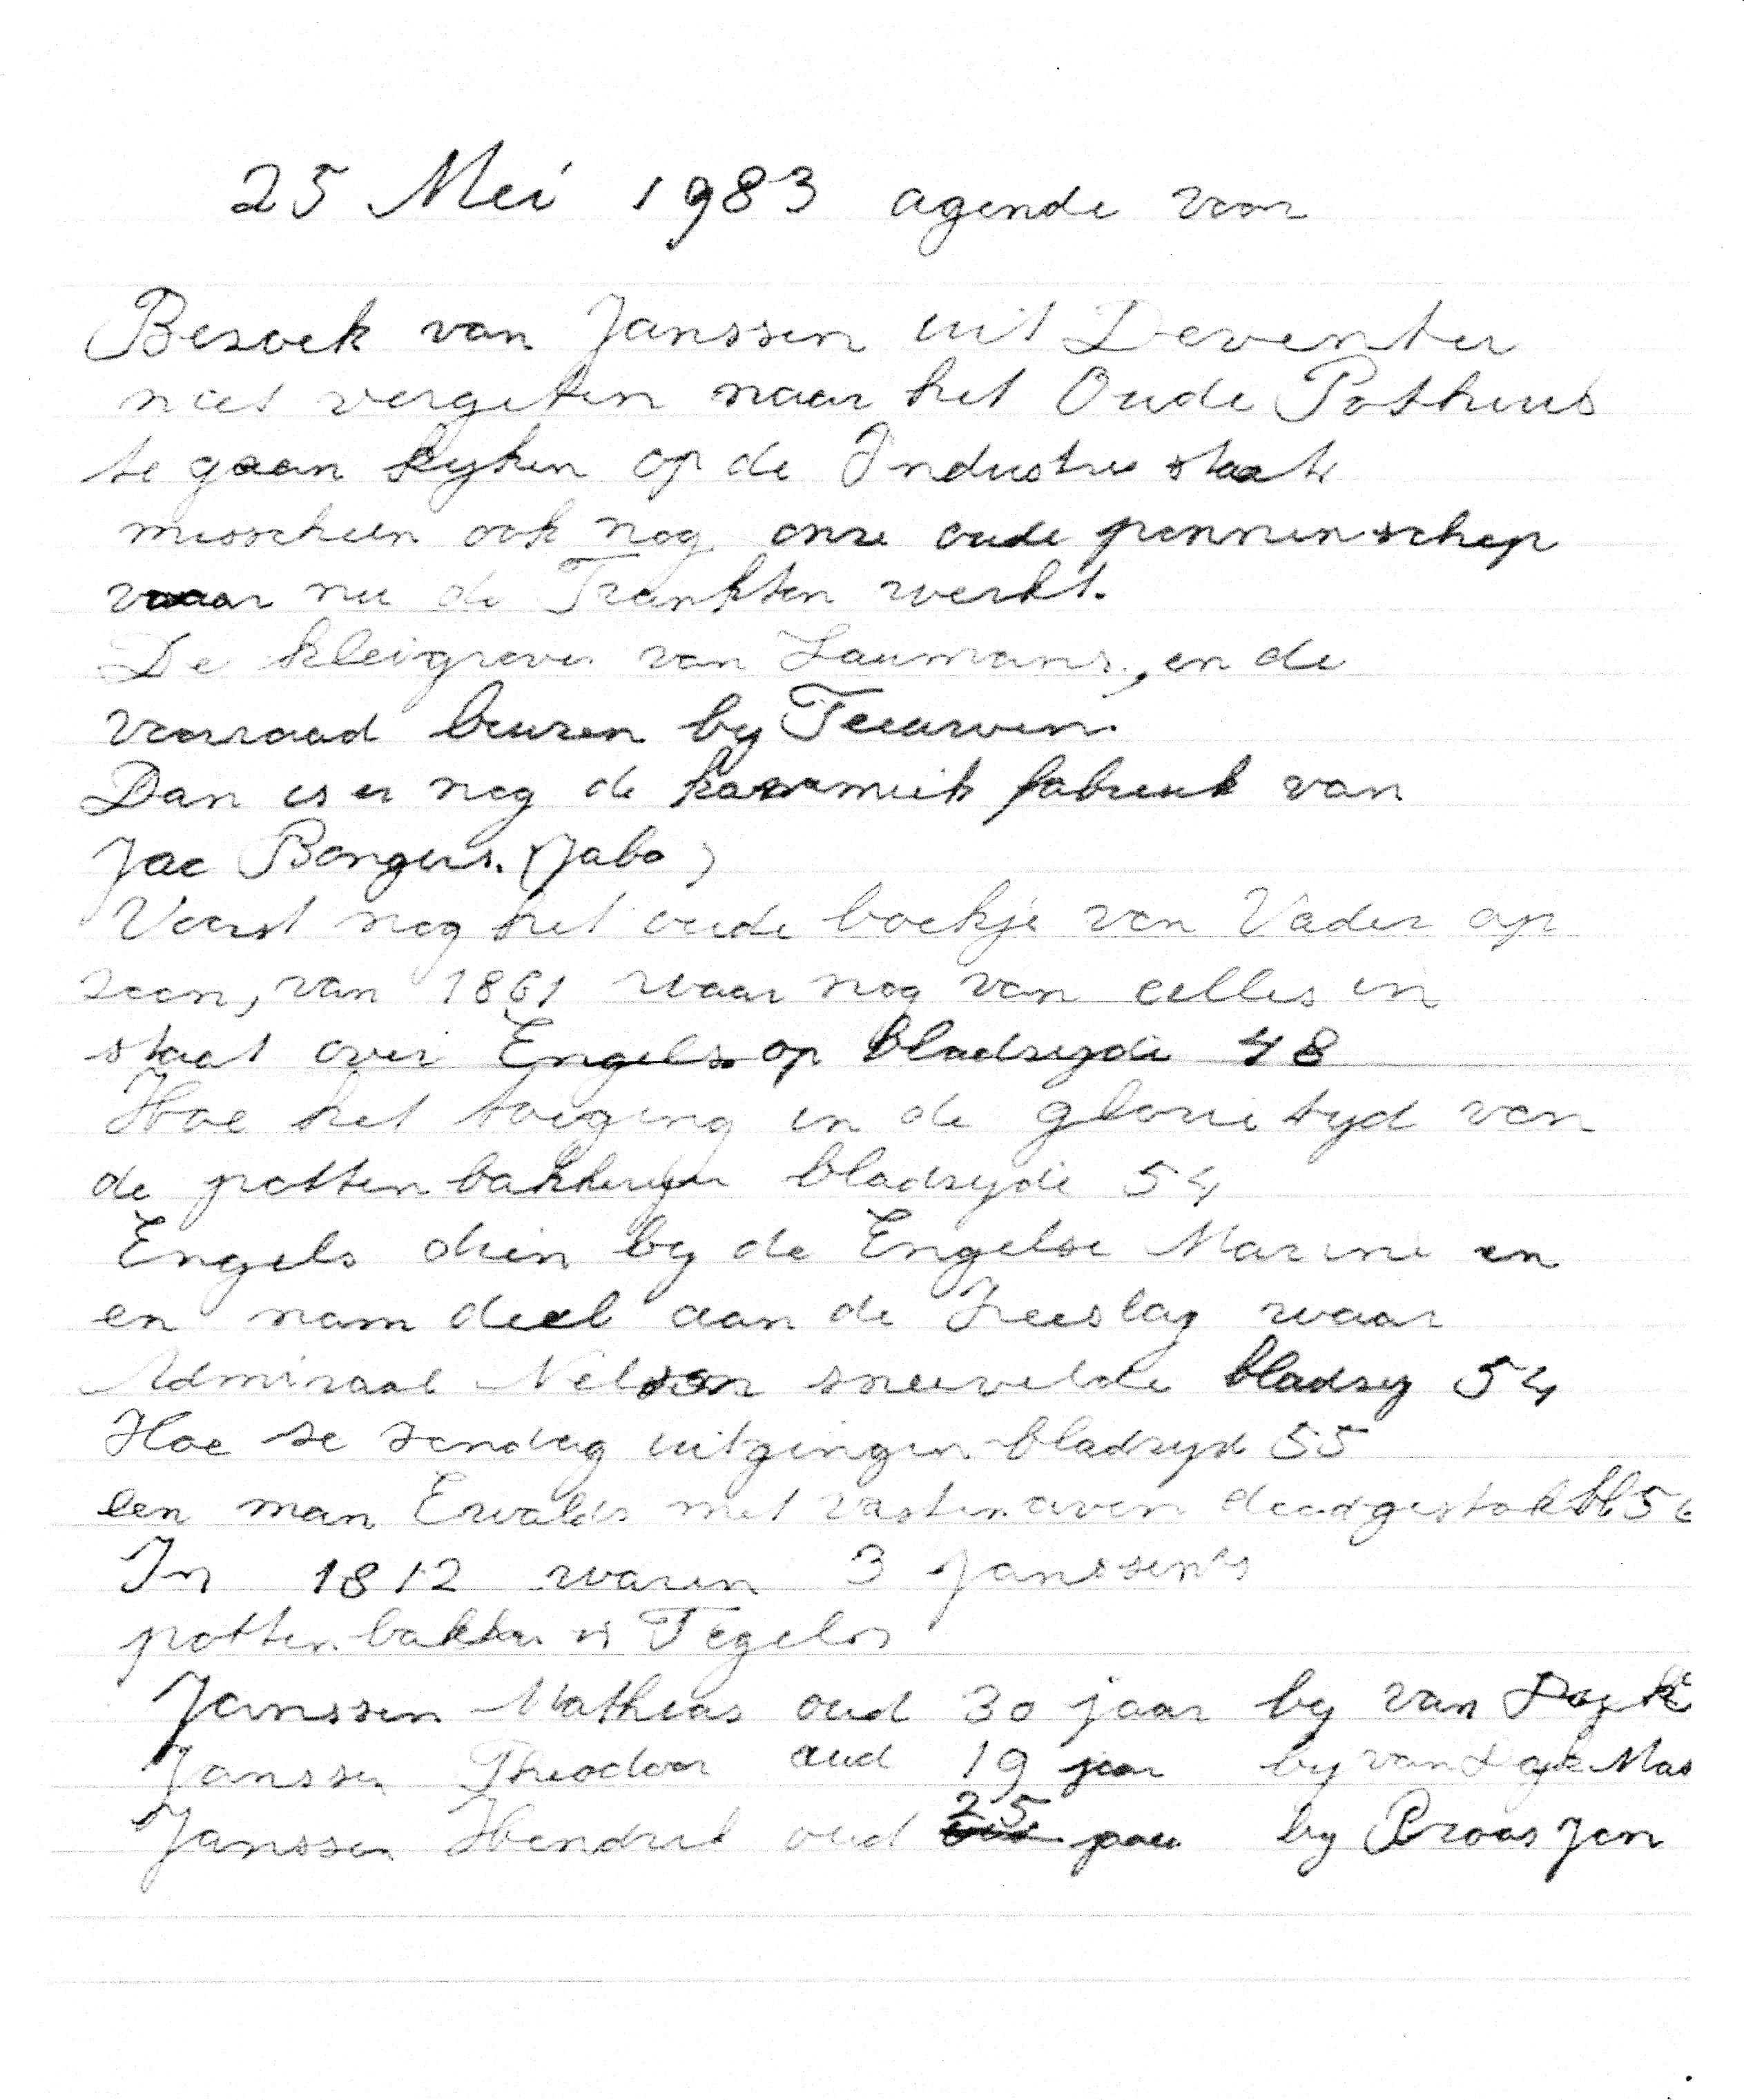 25 Mei 1983 agende voor
Bezoek van Janssen uit Deventer
niet vergeten naar het Oude Pothuus
te gaan kyken op de Industrie staate
misschien ook nog onze oude pannenschop
waar nu de Trankten werkt.
De kleigroeve van Laumans, en de
voorraad buuren by Teeuwen.
Dan is er nog de karamiek fabriek van
Jac Bongers. (Jabo)
Voorst nog het oude boekje van Vader op
zoen, van 1861 waar nog van alles in
staat over Engels op bladzyde 48
Hoe het toeging in de glorie tyd van
de potten bakkeryen bladzyde 54
Engels dien by de Engelse Marine en
en nam deel aan de Zeeslag waar
Admiraal Nelson sneuvelde bladzy 54
Hoe ze zondag uitgingen bladzyd 55
een man Ewalds met vastenaven doodgestok bl 56
In 1812 waren 3 Janssen's
potten bakker in Tegelen
Janssen Mathias oud 30 jaar by van Dyck
Janssen Theodoor oud 19 jaar by van Dyck Mas
Janssen Hendrik oud 25 jaar by Jan